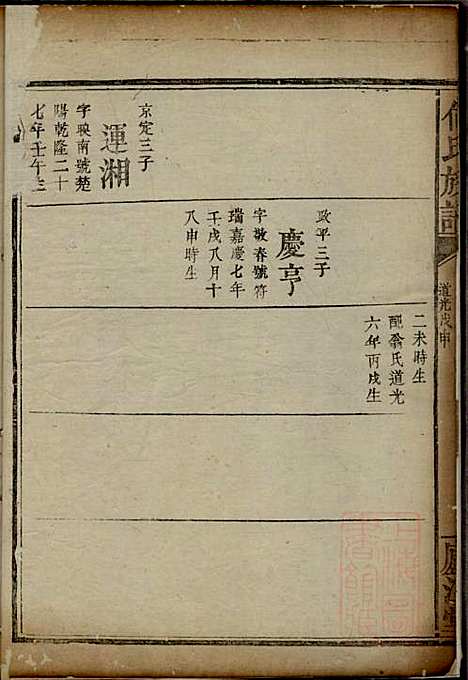 氏族譜
道光戊申
京定三子
運湘
字映南號楚
陽乾隆二十
七年壬午三
政平三子
慶亨
字敬春號符
瑞嘉慶七年
壬戌八月十
八申時生
二未時生
配翁氏道光
六年丙戌生